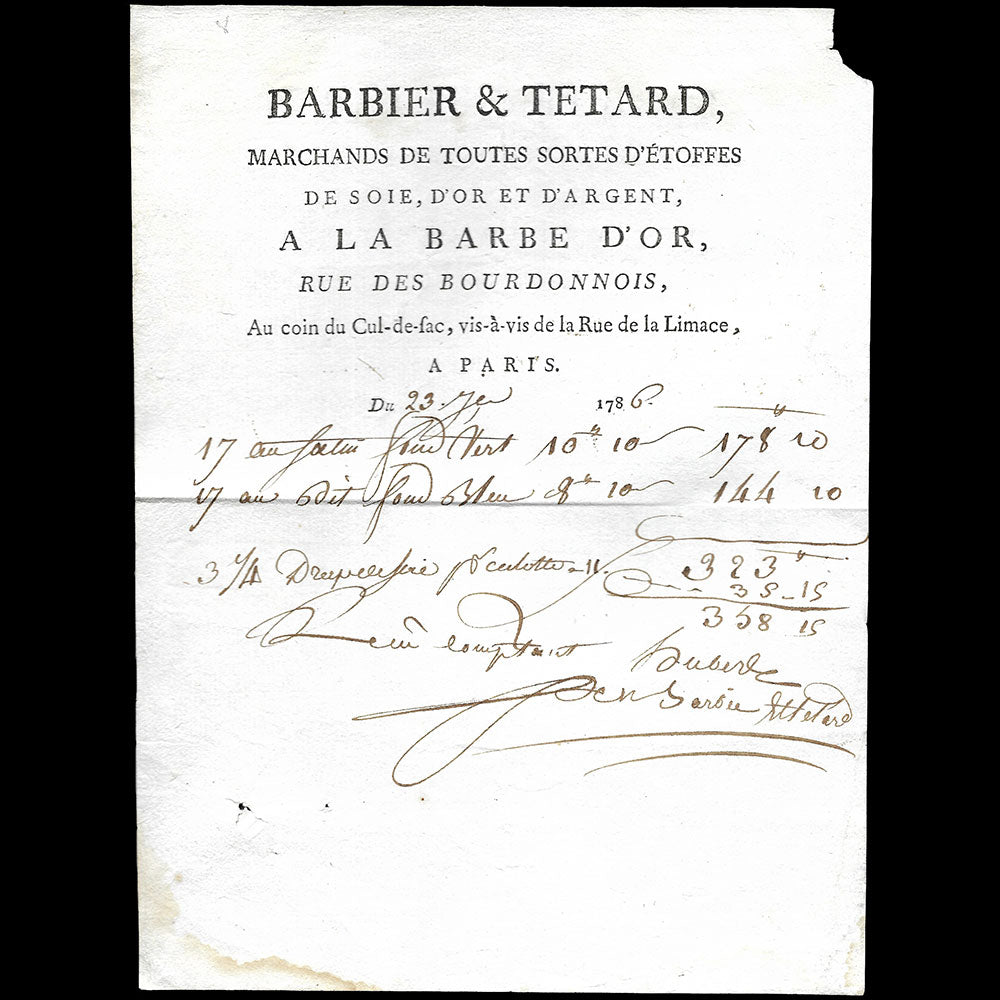 8
BARBIER & TETARD,
MARCHANDS DE TOUTES SORTES D'ÉTOFFES
DE SOIE, D'OR ET D'ARGENT,
A LA BARBE D'OR,
RUE DES BOURDONNOIS,
Au coin du Cul-de-ſac, vis-à-vis de la Rue de la Limace,
A PARIS.
Du 23 1786.
17 au ſatin fond Vert 10 10 178 10
17 au dit fond Bleu 8 10 144 10
323
3 1/4 Drap de soie pr culotte 11 35 15
358 15
comptant
Barbier et Tetard